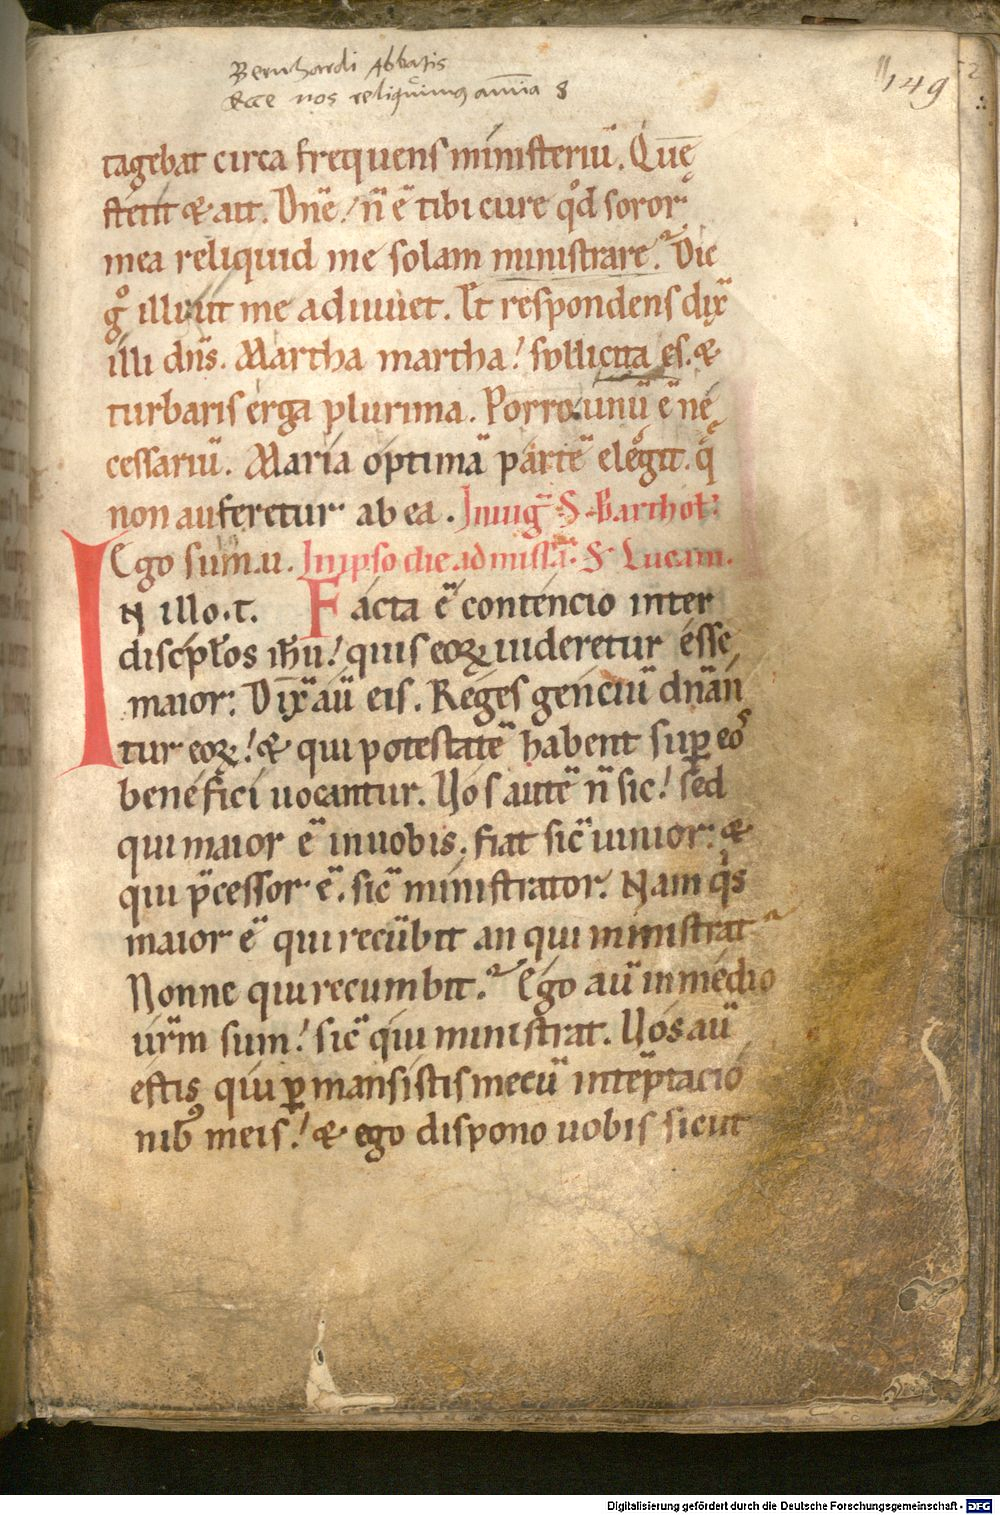 Bernhardi Abbatis
Ecce nos reliquimus omnia 8
149
tagebat circa frequens ministeriū. Quę
stetit & ait. Dn̄e! n̄ ē tibi cure qd soror
mea reliquid me solam ministrare? Dic
gͦ illi ut me adiuuet. Et respondens dix̄
illi dn̄s. Martha martha! sollicita es. &
turbaris erga plurima. Porro unū ē ne
cessariū. Maria optimā partē elegit. q̄
non auferetur ab ea. In uiḡ S. Barthol.
Ego sum .u. In ipso die ad missā. S. Lucam.
IN illo .t. Facta ē contencio inter
discipl̄os ih̄u! quis eoꝝ uideretur esse
maior. Dix̄ aū eis. Reges genciū dn̄an
tur eoꝝ! & qui potestatē habent suꝑ eos
benefici uocantur. Uos autē n̄ sic! sed
qui maior ē in uobis. fiat sic̄ iunior. &
qui p̄cessor ē. sic̄ ministrator. Nam qis
maior ē qui recūbit an qui ministrat?
Nonne qui recumbit? Ego aū in medio
ur̄m sum! sic̄ qui ministrat. Uos aū
estis qui ꝑmansistis mecū in tēptacio
nibꝰ meis! & ego dispono uobis sicut
Digitalisierung gefördert durch die Deutsche Forschungsgemeinschaft - DFG